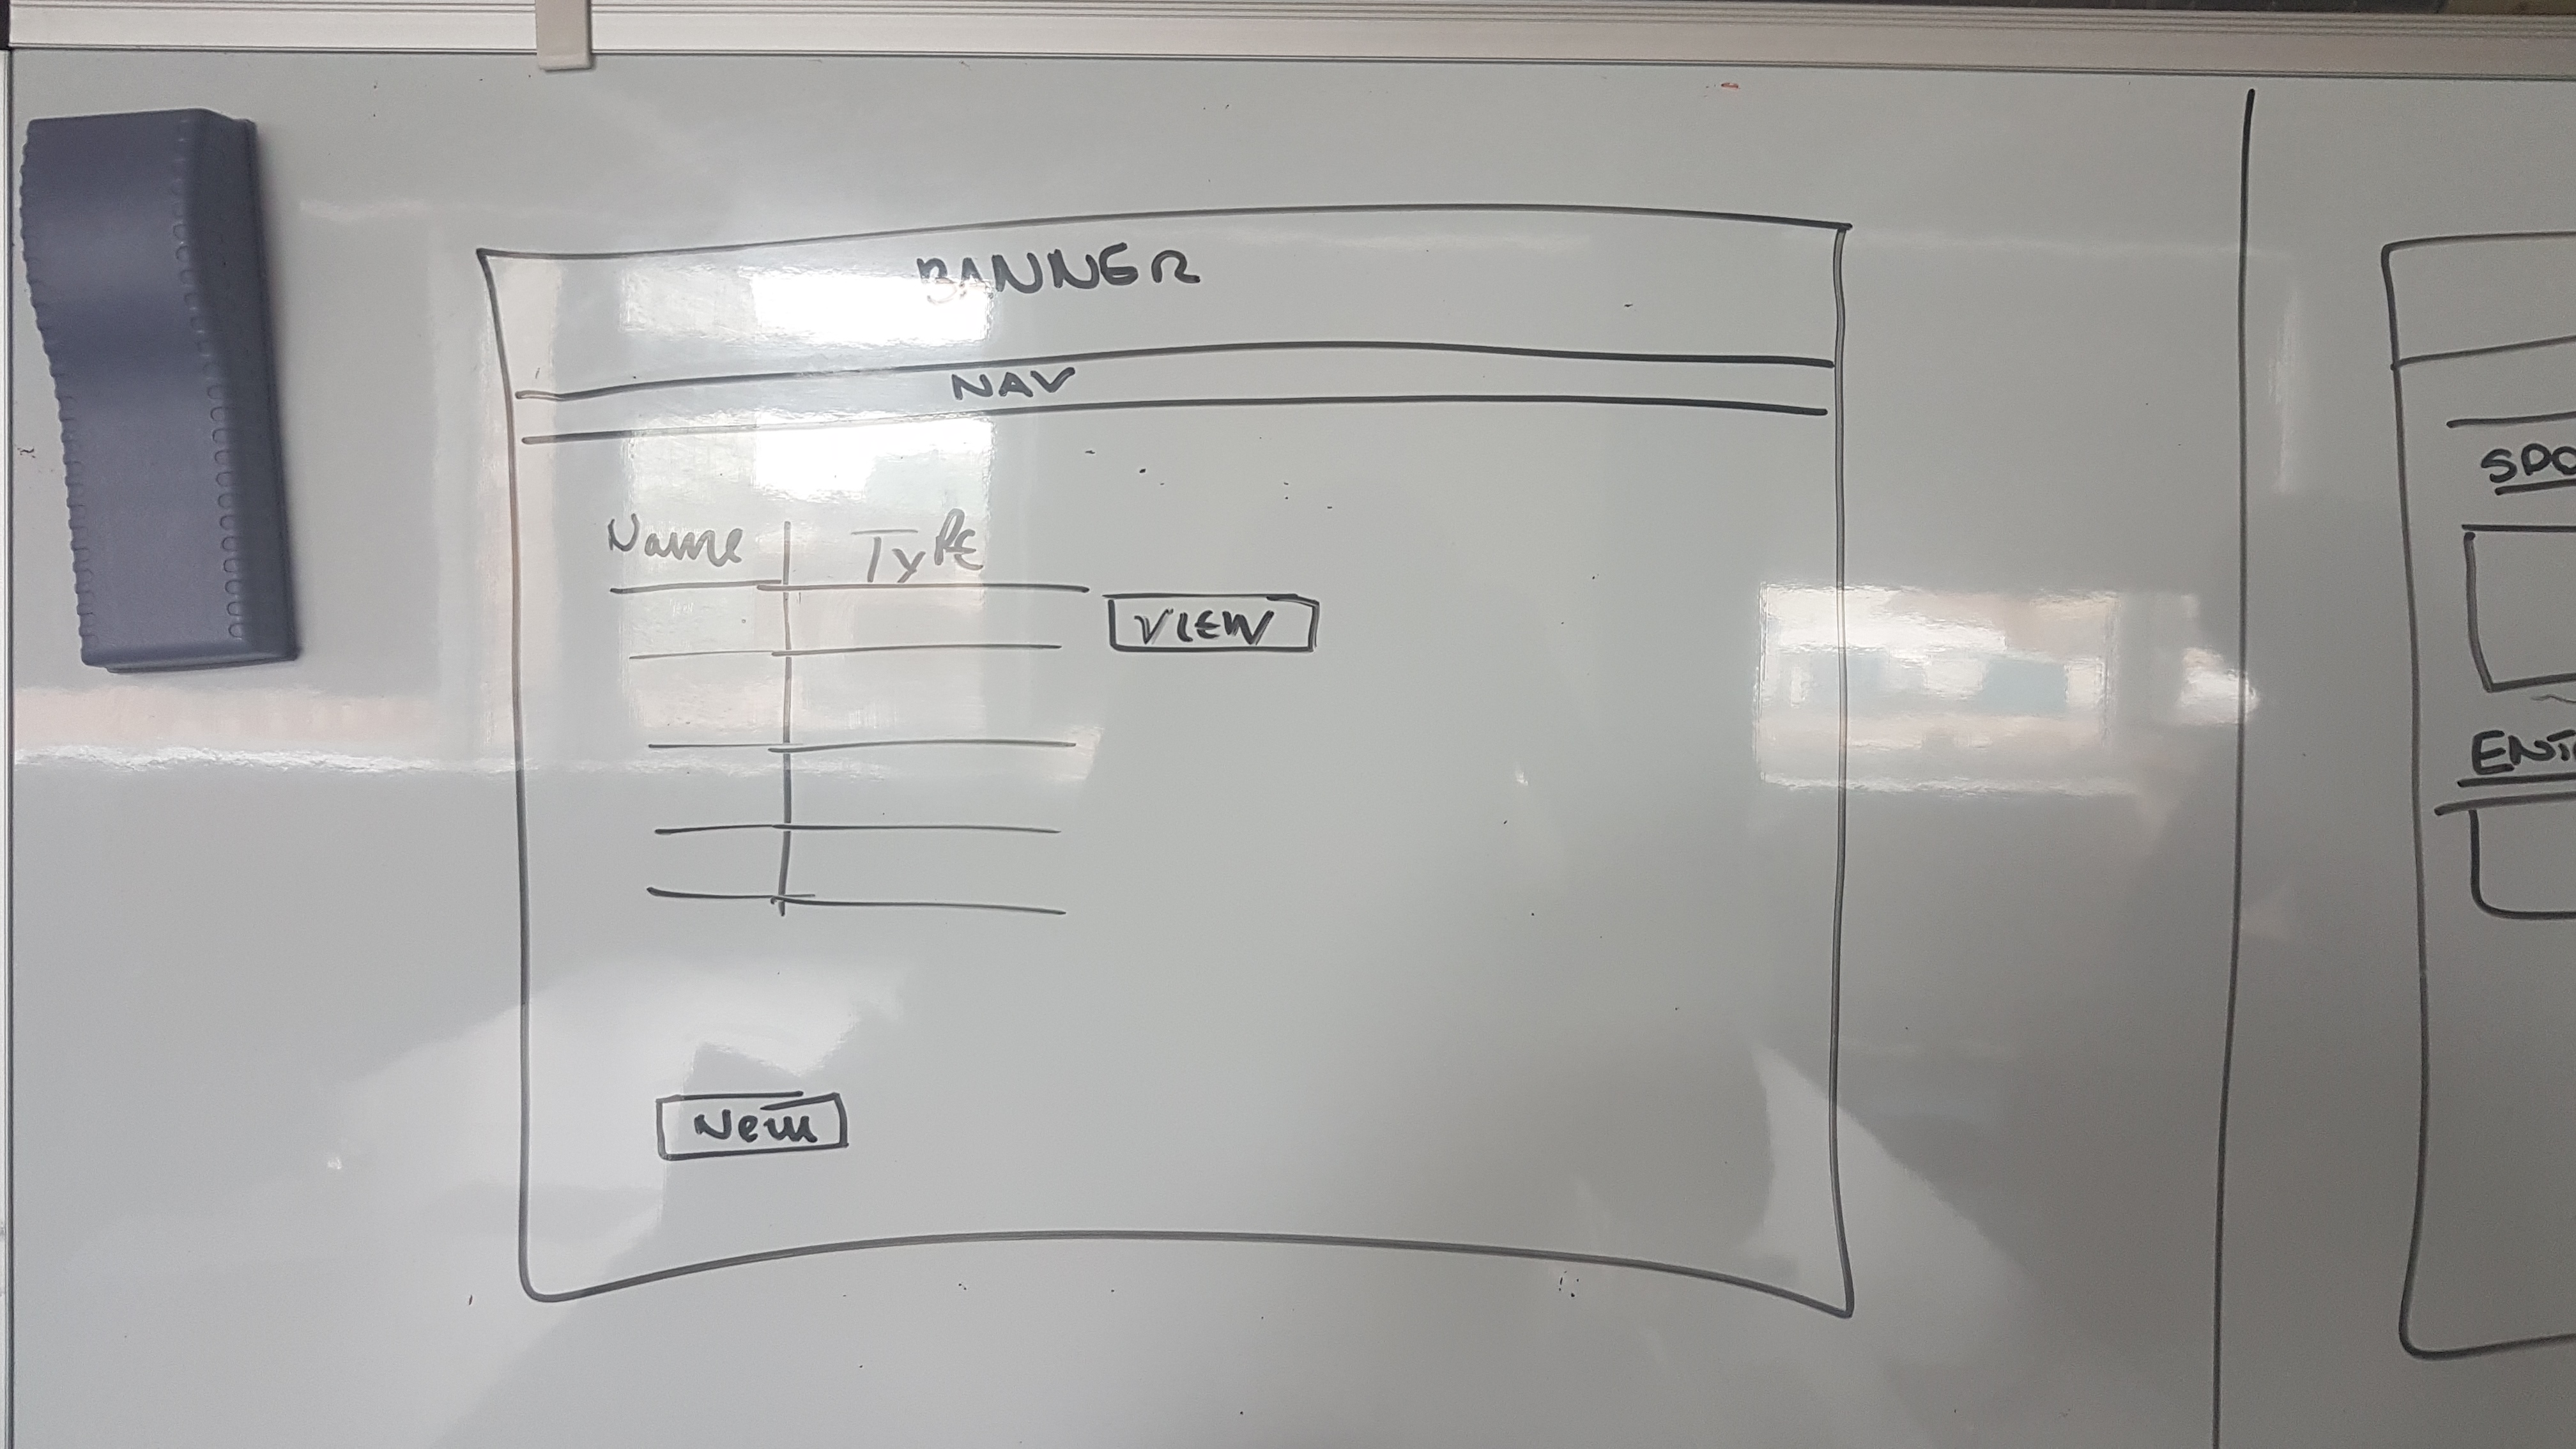 BANNER
NAV
Name Type
VIEW
New